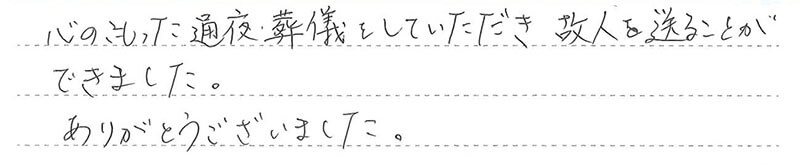 心のこもった通夜・葬儀をしていただき 故人を送ることが
できました。
ありがとうございました。